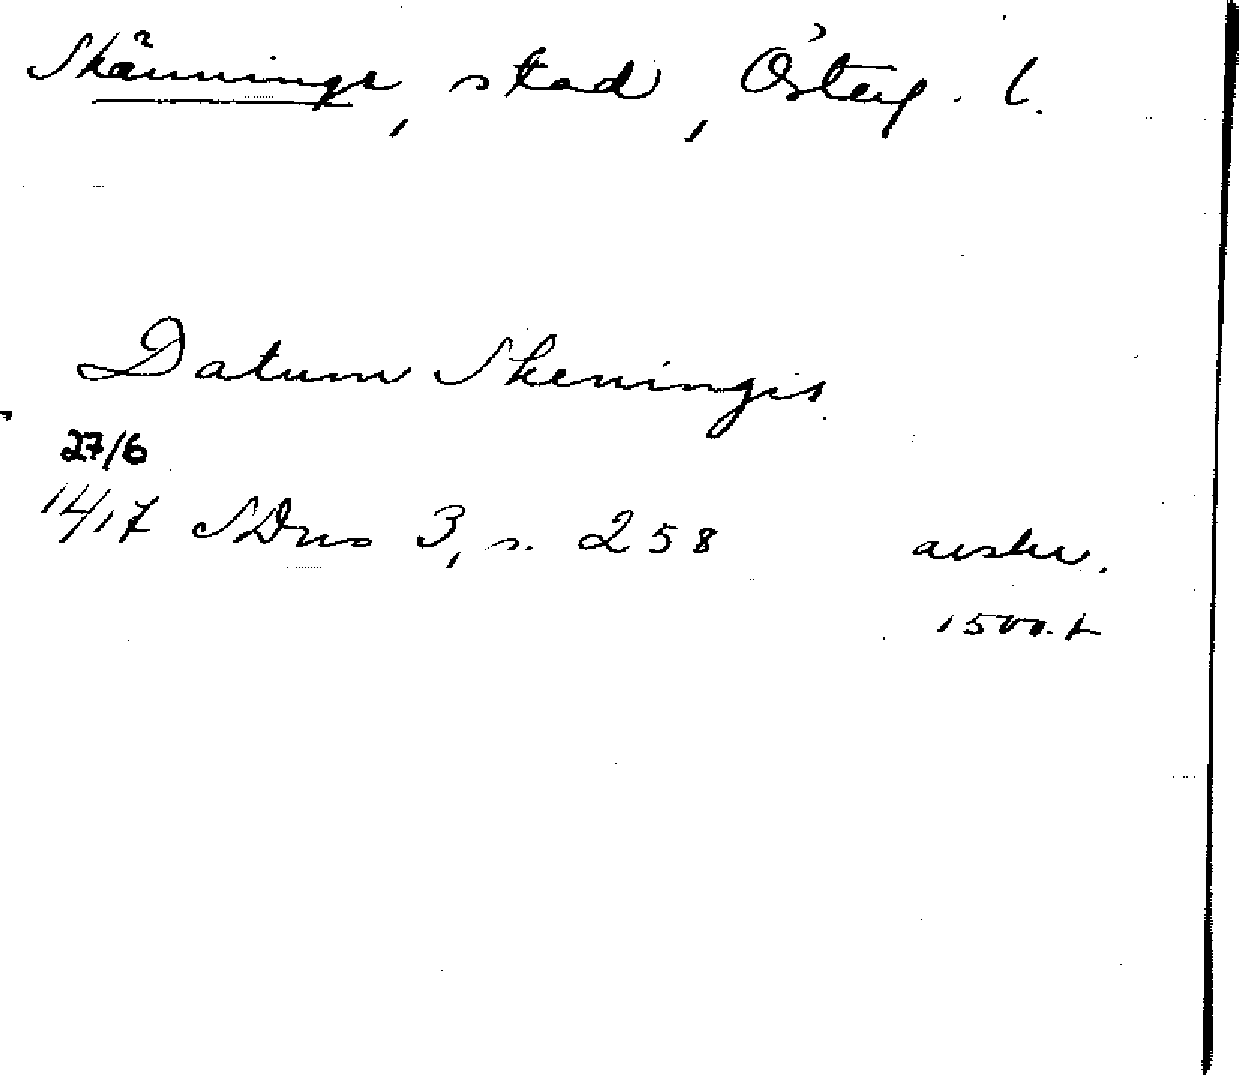 Skänninge, stad, Österg. l.
Datum Skeningis
27/6
1417 SDns 3, s. 258 avskr.
1500.t